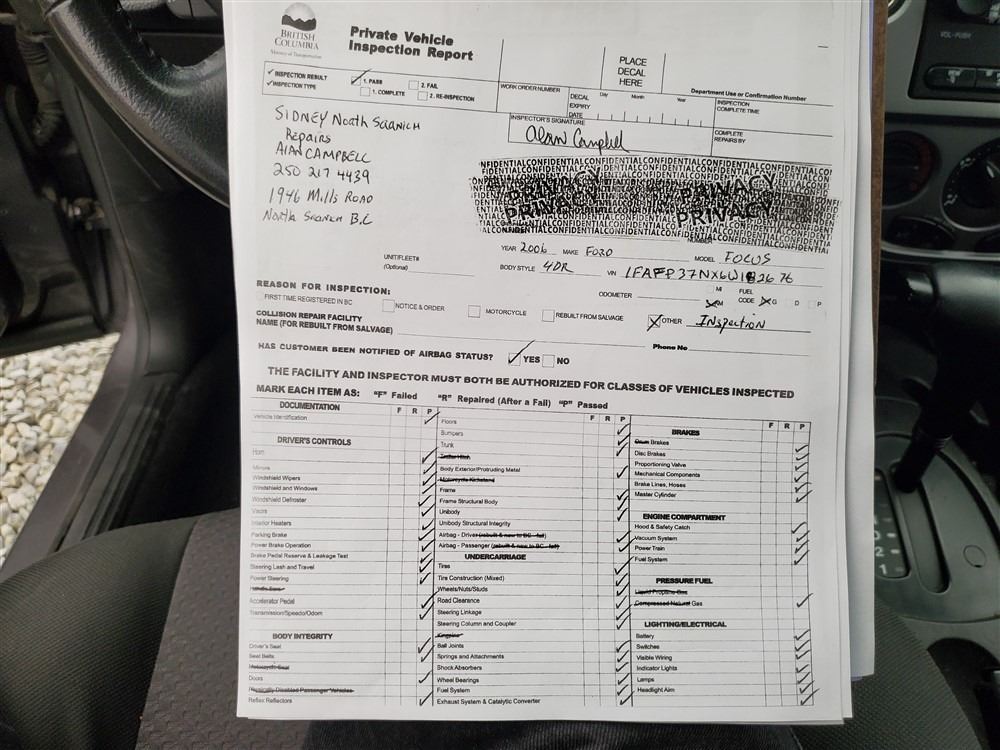 BRITISH
COLUMBIA
Ministry of Transportation
Private Vehicle
Inspection Report
PLACE
DECAL
HERE
Department Use or Confirmation Number
INSPECTION RESULT
1. PASS
2. FAIL
INSPECTION TYPE
1. COMPLETE
2. RE-INSPECTION
WORK ORDER NUMBER
DECAL
EXPIRY
DATE
Day Month Year
INSPECTION
COMPLETE TIME
INSPECTOR'S SIGNATURE
Alan Campbell
COMPLETE
REPAIRS BY
SIDNEY North Saanich
Repairs
Alan CAMPBELL
250 217 4439
1946 Mills Road
North Saanich B.C
CONFIDENTIAL
PRIVACY
PRIVACY
PRIVACY
PRIVACY
UNIT/FLEET#
(Optional)
YEAR 2006 MAKE FORD MODEL FOCUS
BODY STYLE 4DR VIN
REASON FOR INSPECTION:
ODOMETER
MI
KM
FUEL
CODE G D P
FIRST TIME REGISTERED IN BC
NOTICE & ORDER
MOTORCYCLE
REBUILT FROM SALVAGE
OTHER Inspection
COLLISION REPAIR FACILITY
NAME (FOR REBUILT FROM SALVAGE)
Phone No
HAS CUSTOMER BEEN NOTIFIED OF AIRBAG STATUS? YES NO
THE FACILITY AND INSPECTOR MUST BOTH BE AUTHORIZED FOR CLASSES OF VEHICLES INSPECTED
MARK EACH ITEM AS: "F" Failed "R" Repaired (After a Fail) "P" Passed
DOCUMENTATION F R P
Vehicle Identification
DRIVER'S CONTROLS
Horn
Mirrors
Windshield Wipers
Windshield and Windows
Windshield Defroster
Visors
Interior Heaters
Parking Brake
Power Brake Operation
Brake Pedal Reserve & Leakage Test
Steering Lash and Travel
Power Steering
Handle Bars
Accelerator Pedal
Transmission/Speedo/Odom
BODY INTEGRITY
Driver's Seat
Seat Belts
Motorcycle Seat
Doors
Physically Disabled Passenger Vehicles
Reflex Reflectors
F R P
Floors
Bumpers
Trunk
Trailer Hitch
Body Exterior/Protruding Metal
Motorcycle Kickstand
Frame
Frame Structural Body
Unibody
Unibody Structural Integrity
Airbag - Driver (rebuilt & new to BC - fail)
Airbag - Passenger (rebuilt & new to BC - fail)
UNDERCARRIAGE
Tires
Tire Construction (Mixed)
Wheels/Nuts/Studs
Road Clearance
Steering Linkage
Steering Column and Coupler
Kingpins
Ball Joints
Springs and Attachments
Shock Absorbers
Wheel Bearings
Fuel System
Exhaust System & Catalytic Converter
BRAKES F R P
Drum Brakes
Disc Brakes
Proportioning Valve
Mechanical Components
Brake Lines, Hoses
Master Cylinder
ENGINE COMPARTMENT
Hood & Safety Catch
Vacuum System
Power Train
Fuel System
PRESSURE FUEL
Liquid Propane Gas
Compressed Natural Gas
LIGHTING/ELECTRICAL
Battery
Switches
Visible Wiring
Indicator Lights
Lamps
Headlight Aim
VOL-PUSH
2
1